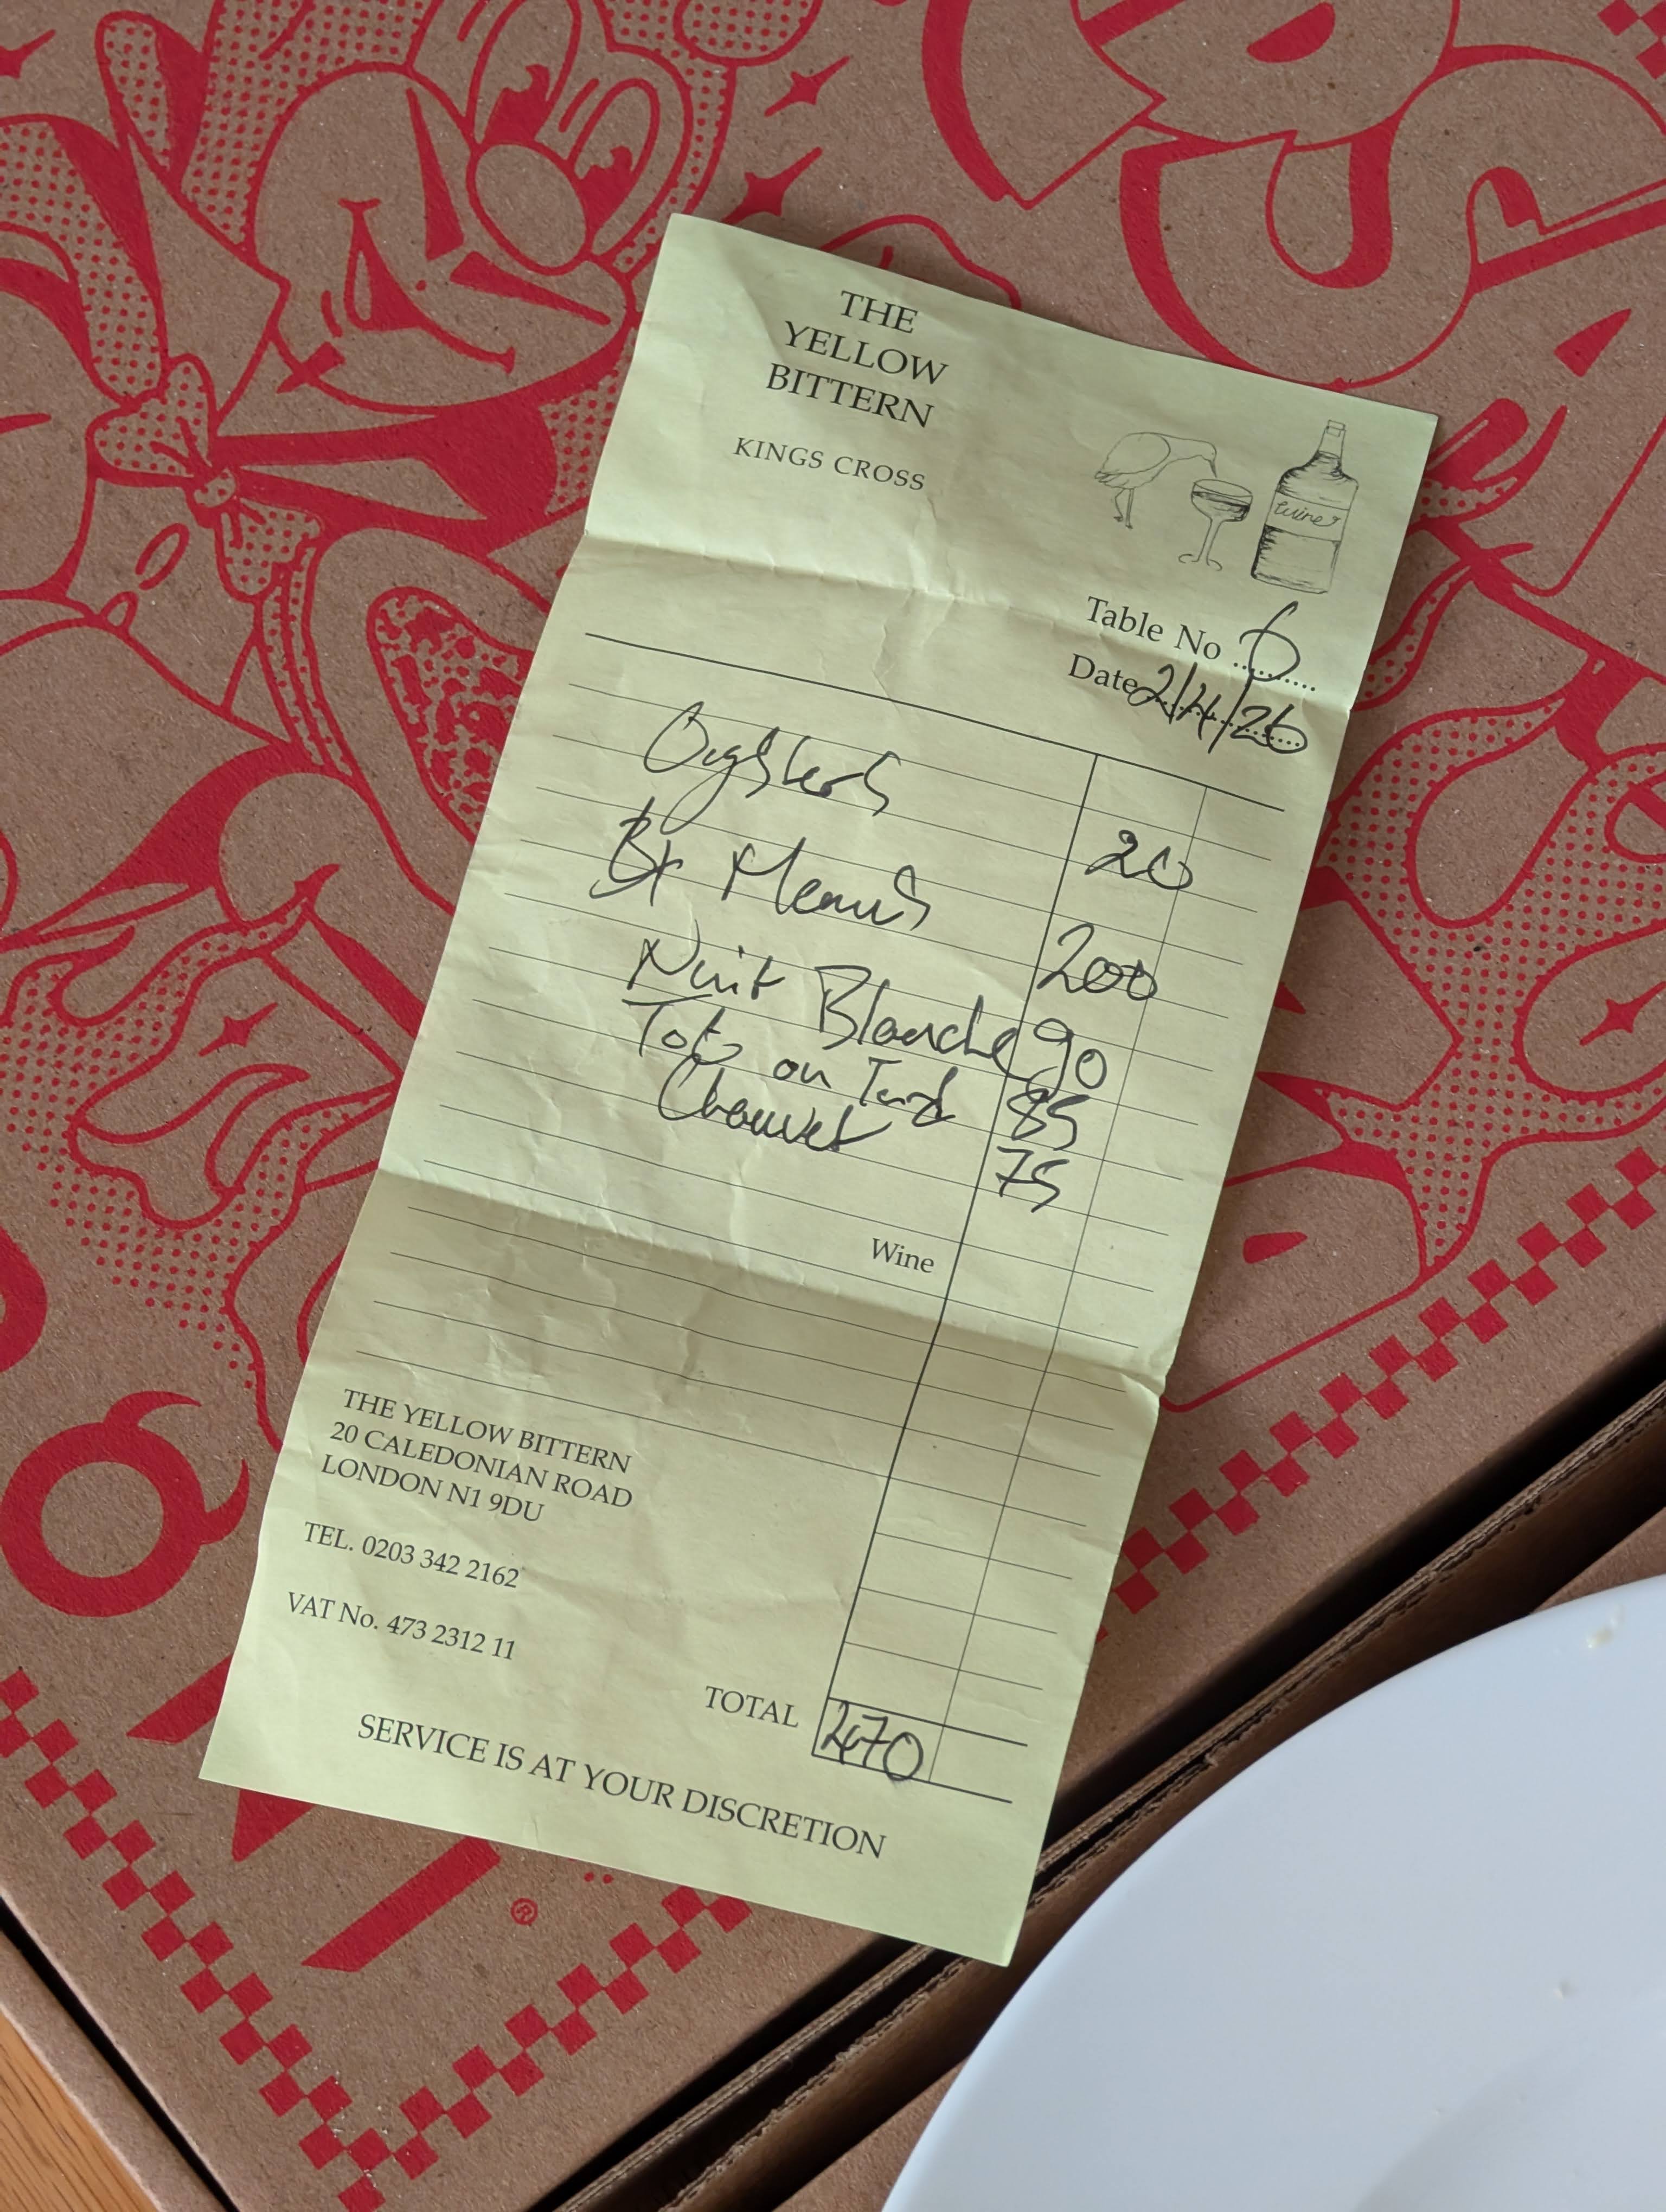 THE
YELLOW
BITTERN
KINGS CROSS
Wine
Table No 6
Date 2/4/26
Oysters 20
Menus 200
Nuit Blanche 90
Tot on Tard 85
Chauvet 75
Wine
THE YELLOW BITTERN
20 CALEDONIAN ROAD
LONDON N1 9DU
TEL. 0203 342 2162
VAT No. 473 2312 11
TOTAL 470
SERVICE IS AT YOUR DISCRETION
®